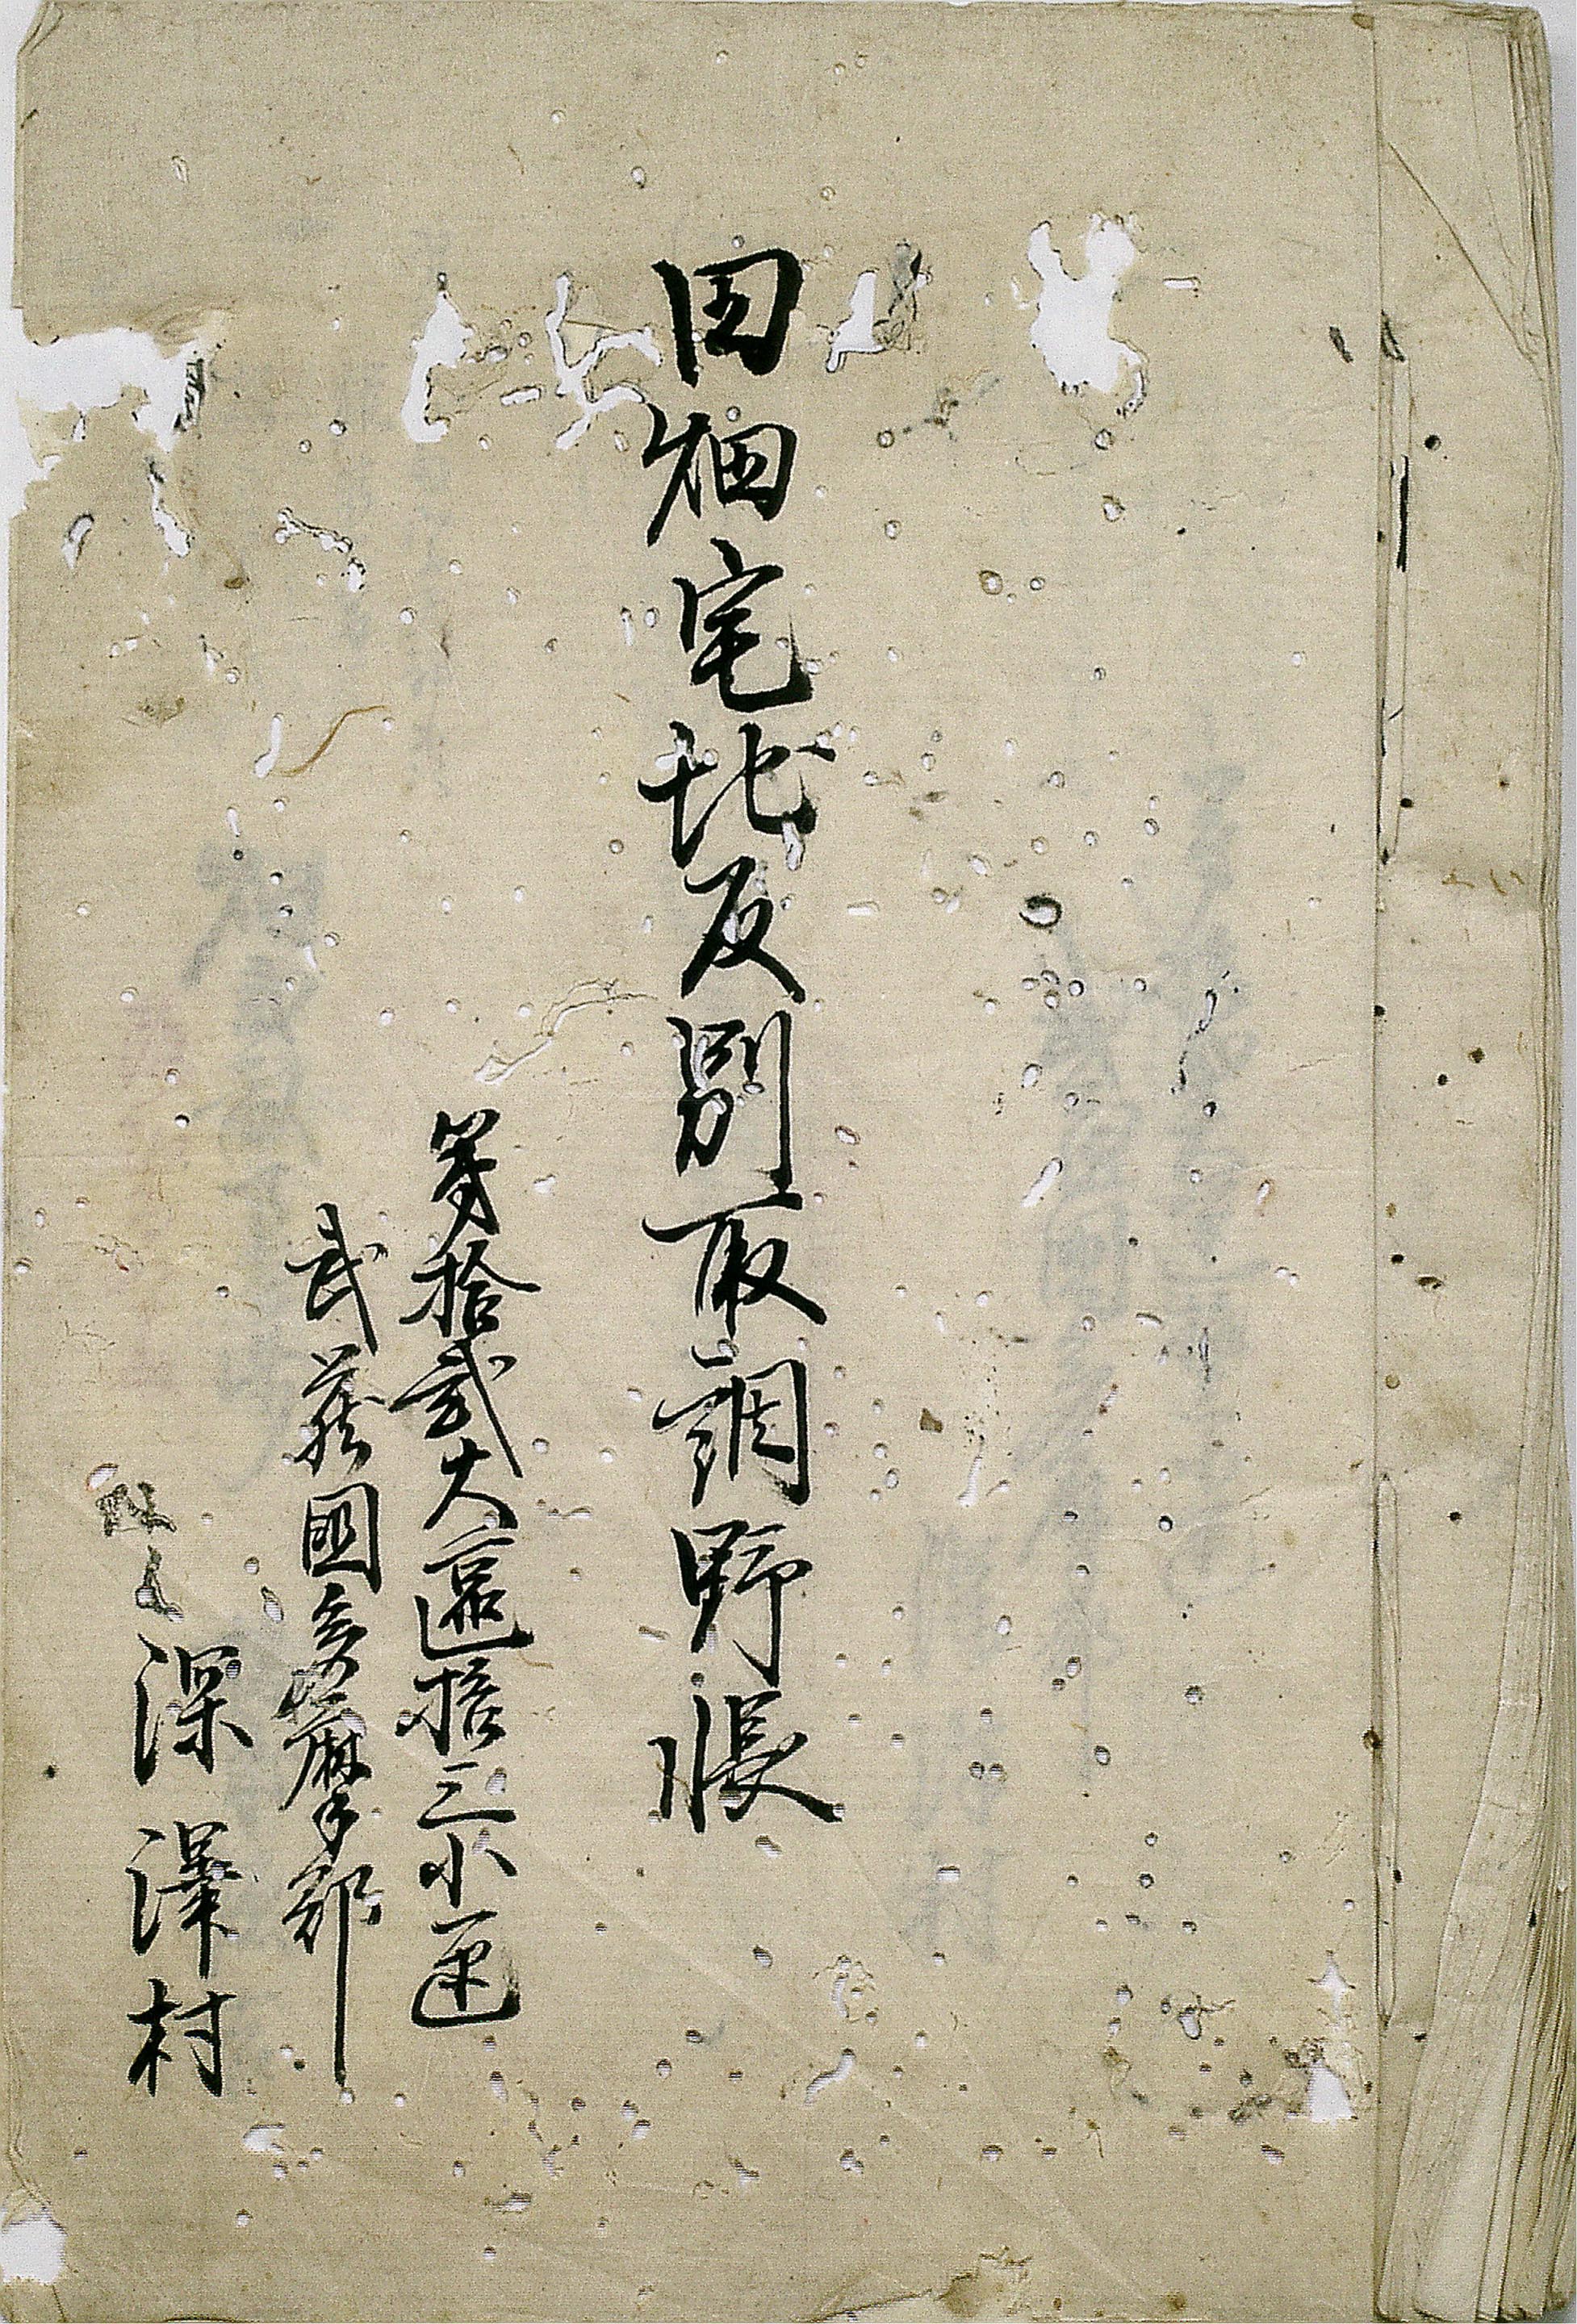 田畑宅地反別取調野帳
第拾弐大區拾三小區
武蔵國多摩郡
深澤村